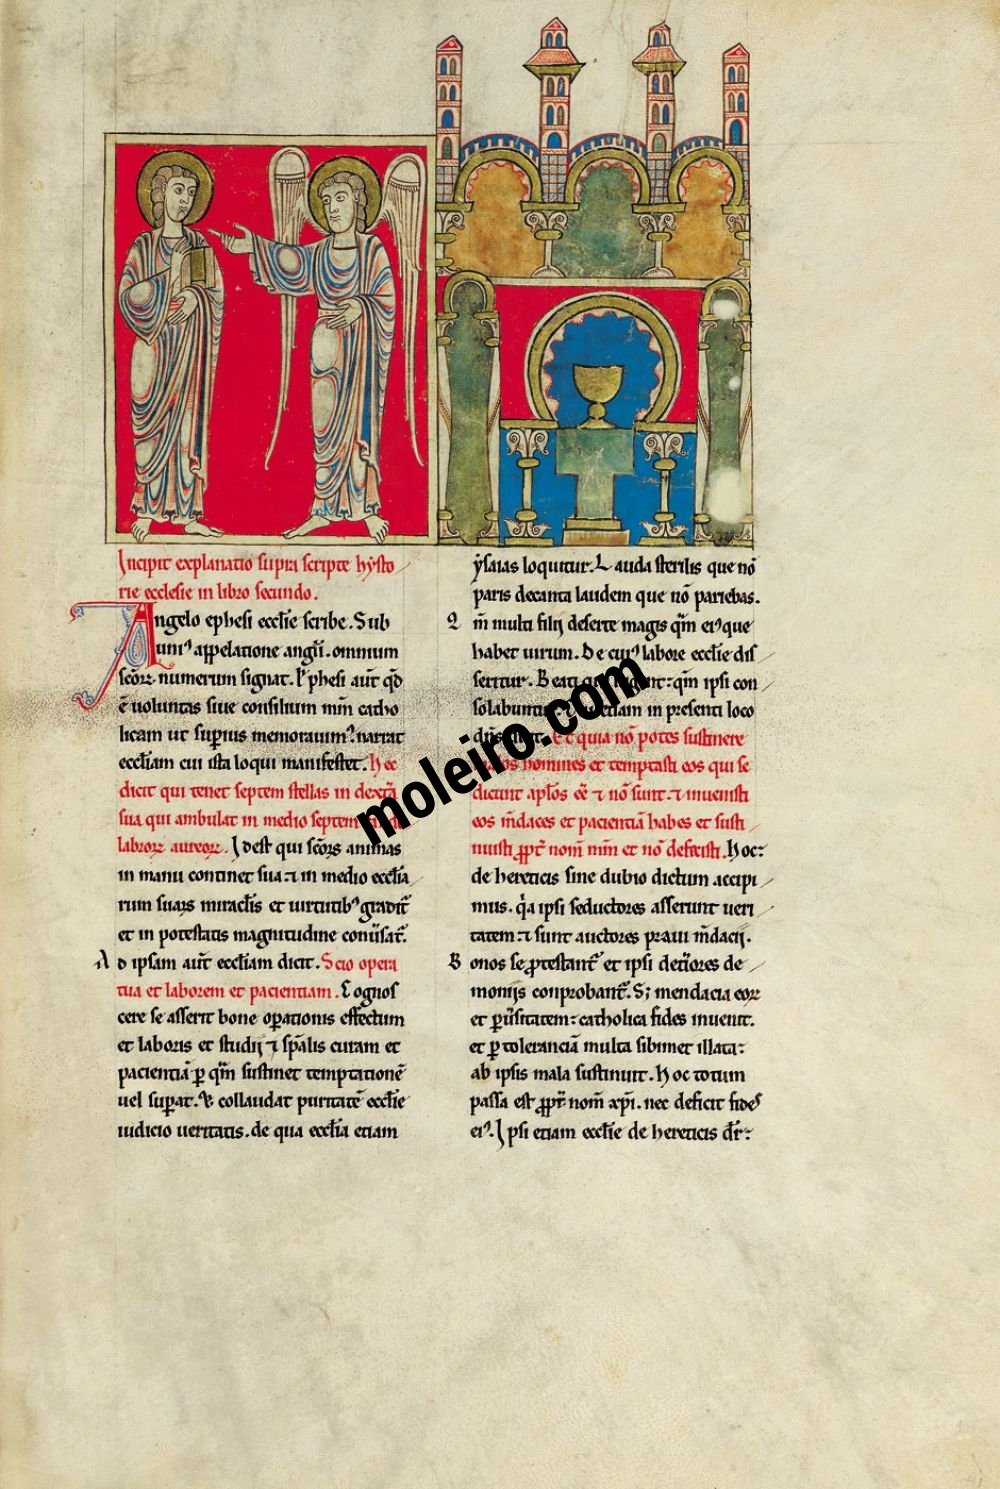 Incipit explanatio supra scripte hẏsto
rie ecclesie in libro secundo.
Angelo ephesi eccľie scribe. Sub
uniꝰ appelatione angľi. omnium
scōꝝ numerum signat. Ephesi aut̄ qđ
ē uoluntas siue consilium mm̄ catho
licam ut supius memorauim? narrat
eccľiam cui ista loqui manifestet. Hec
dicit qui tenet septem stellas in dextra
sua qui ambulat in medio septem
labroꝝ aureoꝝ. Idest qui scōꝝ animas
in manu continet sua: ⁊ in medio eccľia
rum suaꝝ miracľis et uirtutibꝰ gradit᷑
et in potestatis magnitudine conūsat᷑.
Ad ipsam aut̄ eccľiam dicit. Scio opera
tua et laborem et pacientiam. Cognos
cere se asserit bone opationis effectum
et laboris et studij ⁊ spālis curam et
pacientiā ꝑ qm̄ sustinet temptationē
uel supat. ⁊ collaudat puritatē eccľie
iudicio ueritatis. de qua eccľia etiam
ẏsaias loquitur. Lauda sterilis que nō
paris decanta laudem que nō pariebas.
Qm̄ multi filij deserte magis qm̄ eiꝰ que
habet uirum. De cuiꝰ labore eccľie dis
seritur. Beati qui lugent: qm̄ ipsi con
solabuntur. etiam in presenti loco
dn̄s dicit. Et quia nō potes sustinere
malos homines et temptasti eos qui se
dicunt apľos eē ⁊ nō sunt. ⁊ inuenisti
eos m̄daces et pacientiā habes et susti
nuisti ꝓpt᷑ nom̄ mm̄ et nō defecisti. Hoc:
de hereticis sine dubio dictum accipi
mus. qa ipsi seductores asserunt ueri
tatem: ⁊ sunt auctores praui m̄dacij.
Bonos se ꝓtestant᷑ et ipsi det̄iores de
monijs conprobant᷑. S; mendacia eoꝝ
et ꝑūsitatem: catholica fides inuenit.
et ꝑ toleranciā multa sibimet illata:
ab ipsis mala sustinuit. Hoc totum
passa est ꝓpt᷑ nom̄ xpī. nec deficit fides
eiꝰ. Ipsi etiam eccľie de hereticis dr̄:
moleiro.com